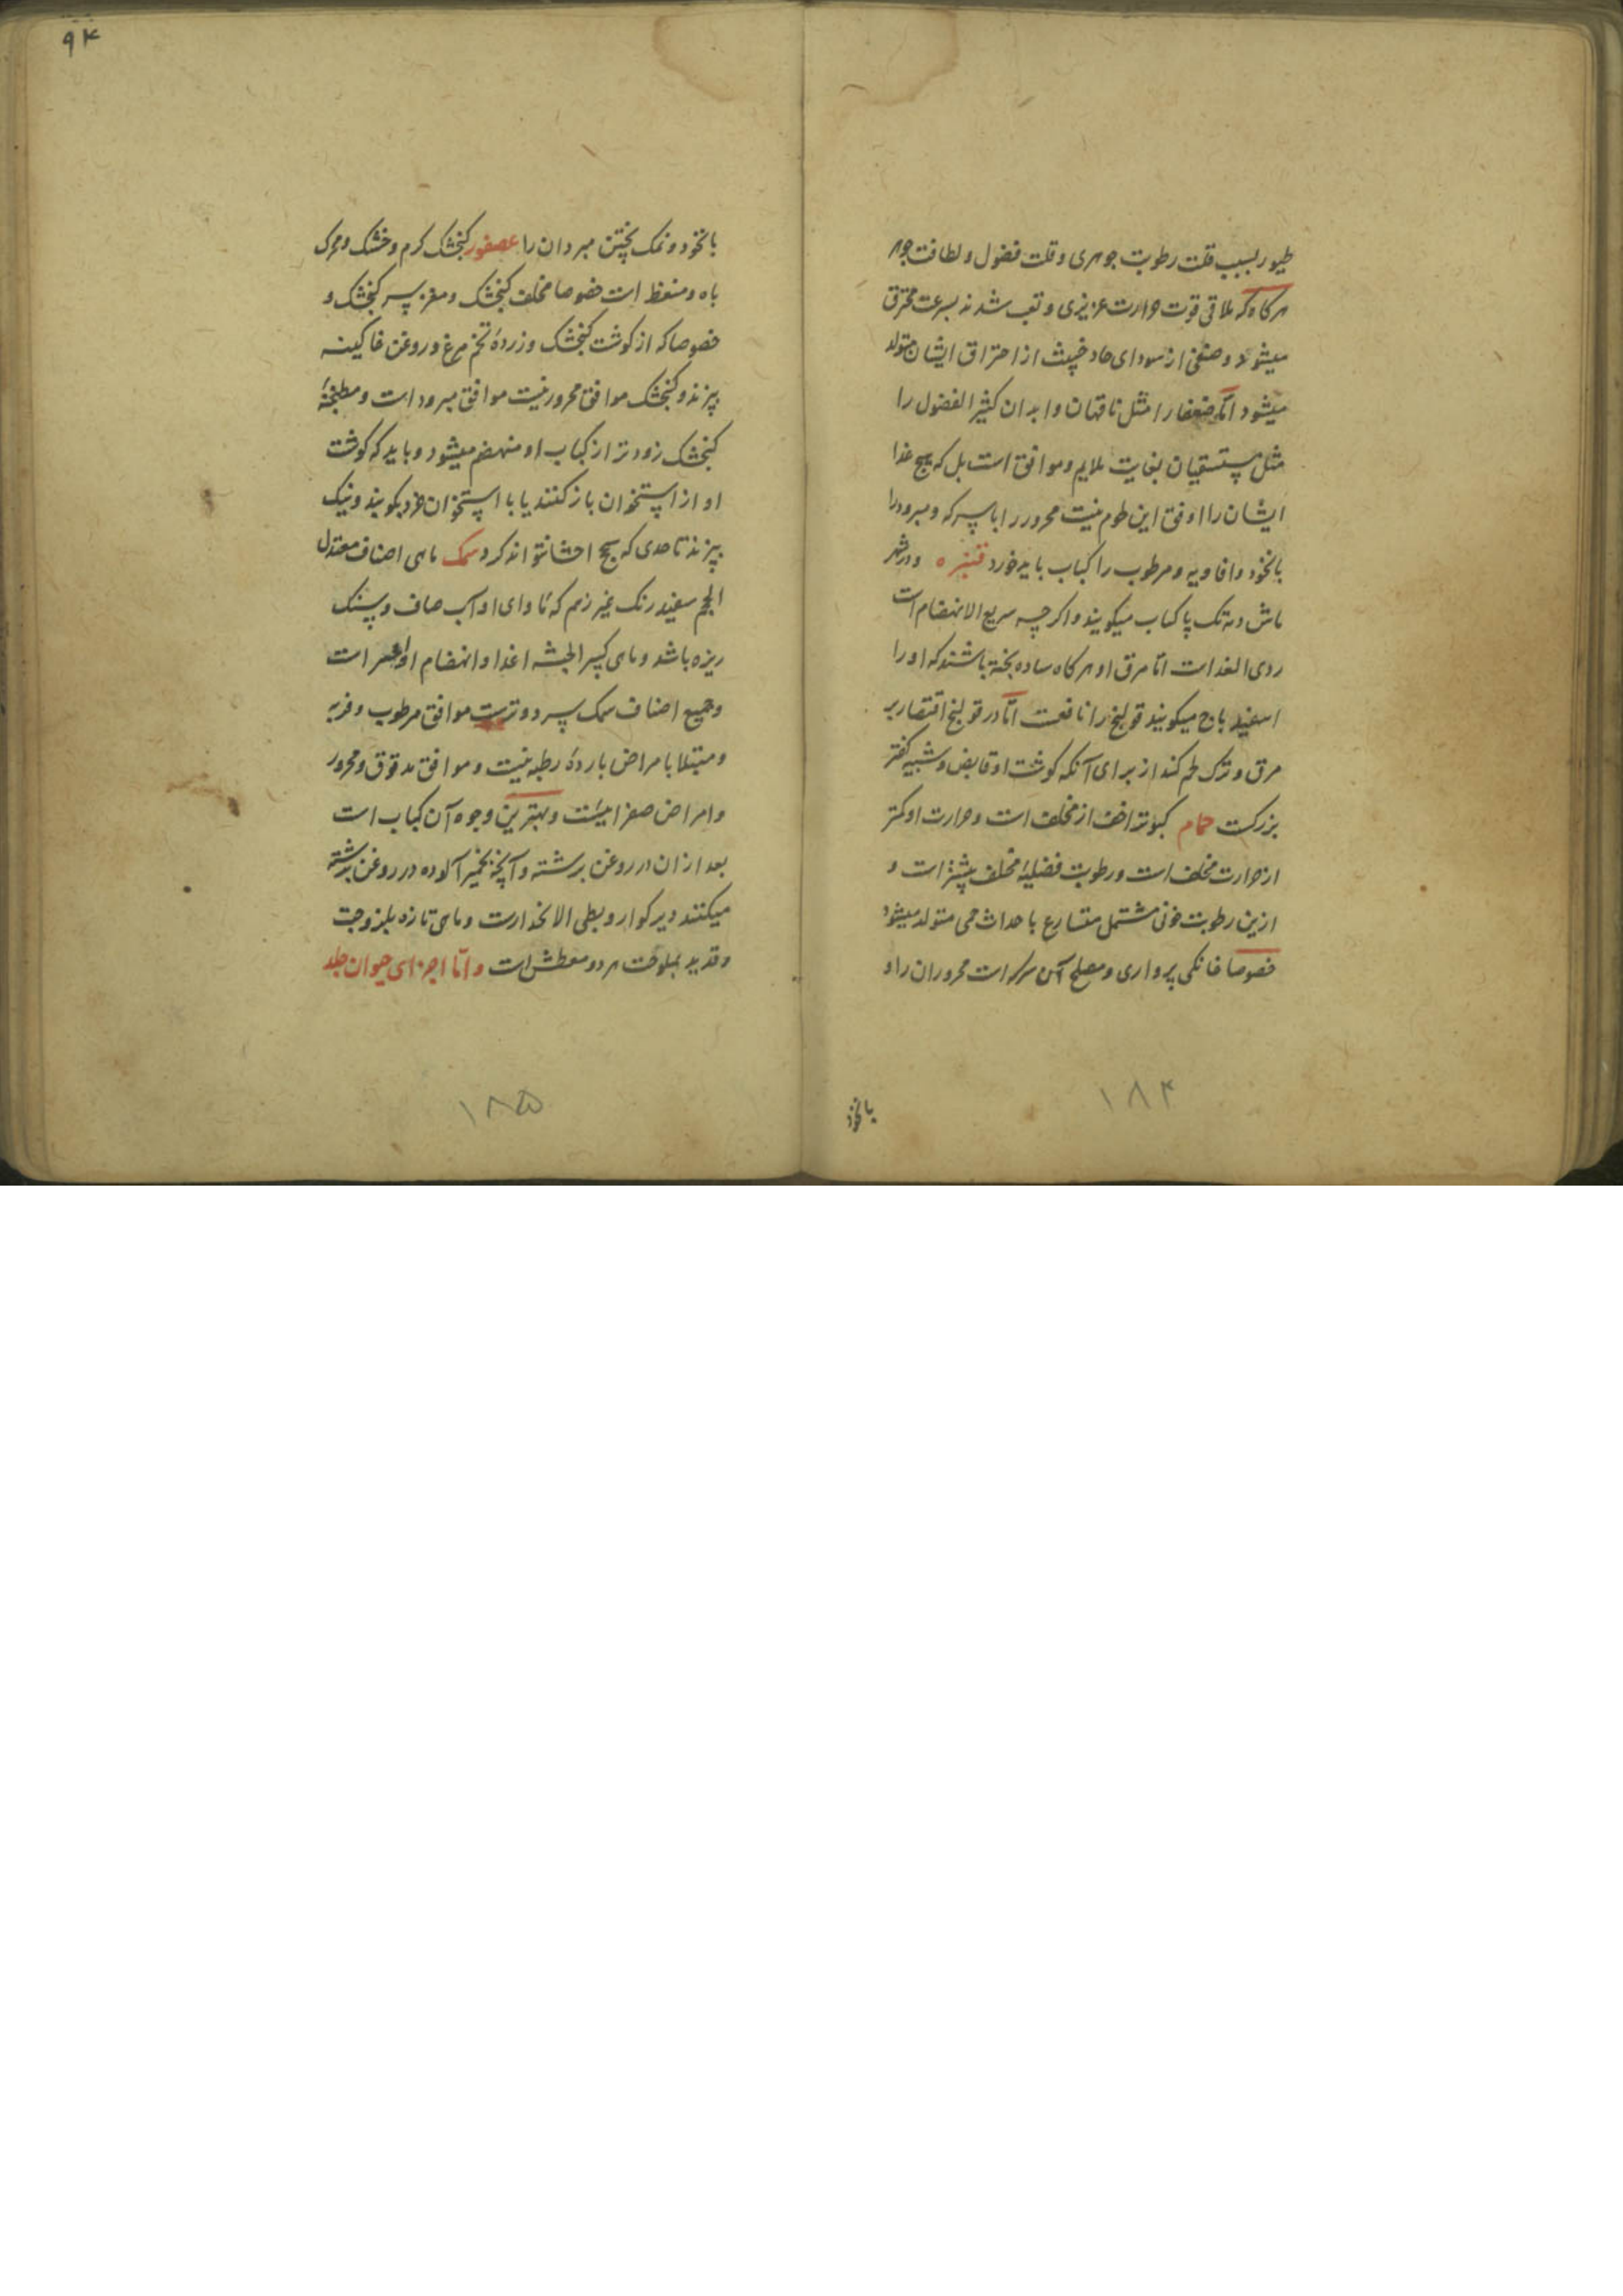 طیور بسبب قلت رطوبت جوهری و قلت فضول و لطافت جوهر
هرکاه که ملاقی قوت حرارت عزیزی و تعب شدند بسرعت محترق
میشود و صنفی از سودای حاد خبیث از احتراق ایشان متولد
میشود اما ضعفا را مثل ناقهان و ابدان کثیر الفضول را
مثل مستسقیان بغایت ملایم و موافق است بل که هیچ غذا
ایشان را اوفق این طوم نیست محرور را با سرکه و مبرود را
بانخود و افاویه و مرطوب را کباب باید خورد قنبره و در شهر
ماش دمه تک پا کباب میکویند و اکرچه سریع الانهضام است
ردی الغذاست اما مرق او هرکاه ساده پخته باشند که او را
اسفید باج میکویند قولنج را نافعست اما در قولنج اقتصار بر
مرق و ترک لحم کند از برای آنکه کوشت او قابض و شبیه کفتر
بزرکست حمام کبوتر اخف از مخلف است و حرارت او کمتر
از حرارت مخلف است و رطوبت فضلیهٔ مخلف بیشتر است و
ازین رطوبت خونی مشتمل متسارع با حداث حمی متولد میشود
خصوصا خانکی پرواری و مصلح آن سرکه است محروران را و
بانخود
۱۸۴
۹۴
بانخود و نمک پختن مبردان را عصفور کنجشک کرم و خشک و محرک
باه و منعظ است خصوصا مخلف کنجشک و مغز سر کنجشک و
خصوصا که از کوشت کنجشک و زردهٔ تخم مرغ و روغن خاکینه
پزند و کنجشک موافق محرور نیست موافق مبرود است و مطبخهٔ
کنجشک زودتر از کباب او منهضم میشود و باید که کوشت
او از استخوان باز کنند یا با استخوان خرد بکویند و نیک
بپزند تا حدی که سحج احشا نتواند کرد سمک ماهی اصناف معتدل
الحجم سفید رنک غیر زهم که ماوای او آب صاف و سنک
ریزه باشد و ماهی کبیر الجثه اغذا و انهضام او اعسر است
و جمیع اصناف سمک سرد و ترست موافق مرطوب و فربه
و مبتلا با مراض باردهٔ رطبه نیست و موافق مدقوق و محرور
و امراض صفرا نیست و بهترین وجوه آن کباب است
بعد ازان در روغن برشته و آنچه بخمیر آلوده در روغن برشته
میکنند دیر کوار و بطی الانحدارست و ماهی تازه بلزوجت
و قدید بملوحت هر دو معطش است و اما اجزای حیوان جلد
۱۸۵